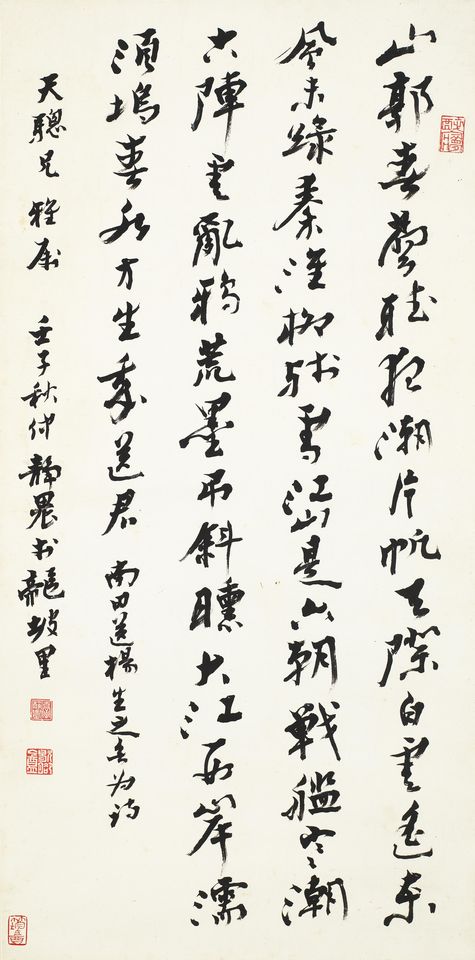 山郭春聲聽夜潮片帆天際白雲遙東
風未綠秦淮柳殘雪江山是六朝戰艦空潮
古陣雲亂鴉荒壘弔斜曛大江西岸濡
須塢春水方生我送君 南田送楊生之無為詩
天聰兄雅屬 壬子秋仲靜農於龍坡里